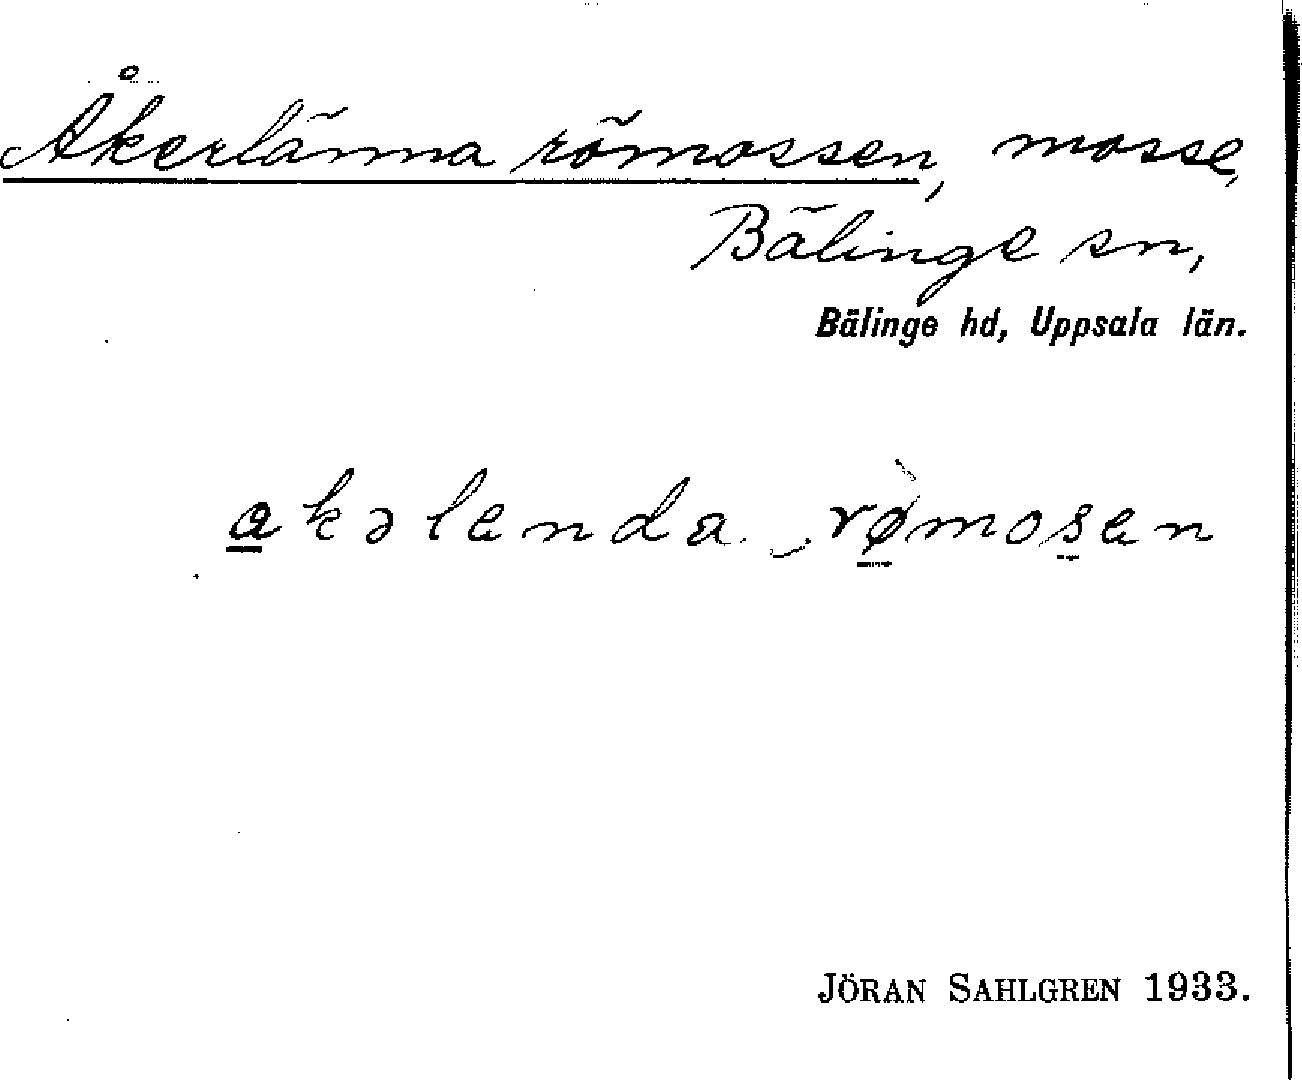 Åkerlänna römossen, mosse,
Bälinge sn,
Bälinge hd, Uppsala län.
akəlenda rømosen
JÖRAN SAHLGREN 1933.